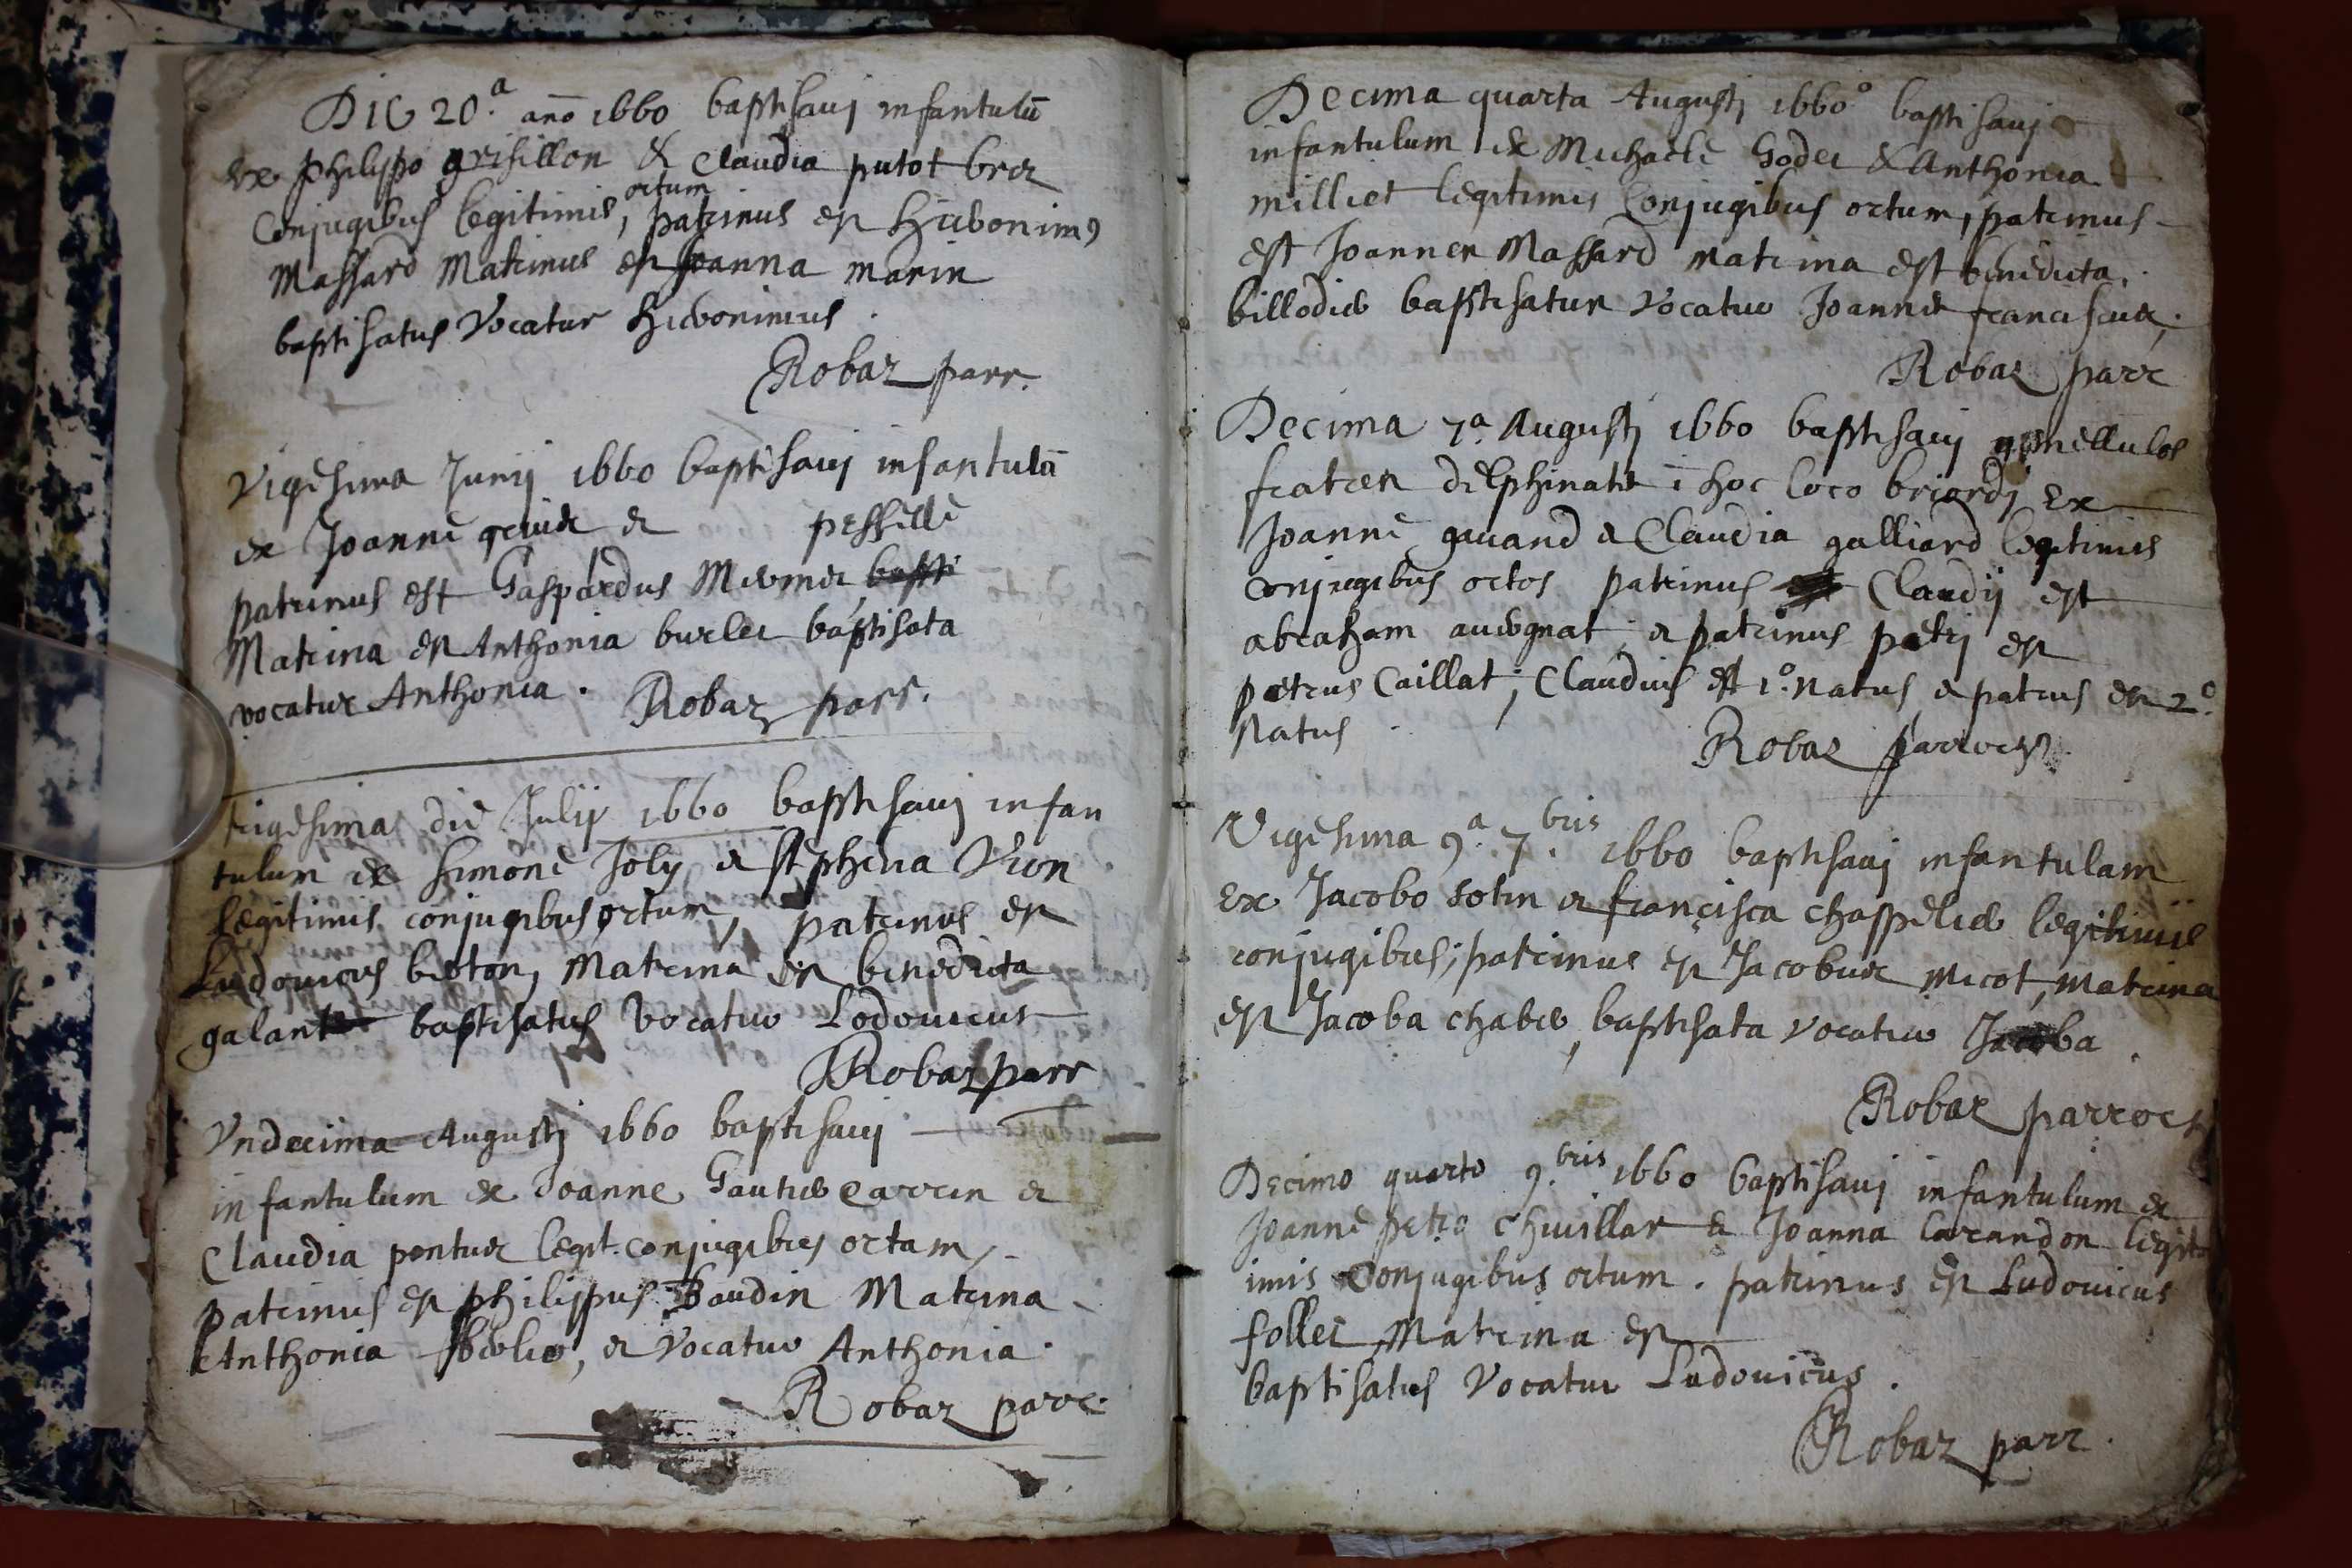 Die 20.a ano 1660 baptisavi infantulū
ex philippo grisillon & Claudia putot brer
Conjugibus legitimis, ortum patrinus est Hieronim9
Massard Matrinus est Joanna marin
baptisatus Vocatur Hieronimus.
Robaz parr.
Vigesima Junij 1660 baptisavi infantulā
ex Joanne et pesselle
patrinus est Gaspardus Mermet bapti
Matrina est Anthonia burlet baptisata
vocatur Anthonia. Robaz parr.
trigesima die Julij 1660 baptisavi infan
tulum ex simone Joly et stephana Vion
legitimis conjugibus ortum, patrinus est
Ludovicus berton, Matrina est benedicta
galant baptisatus Vocatur Lodovicus
Robaz parr
Vndecima Augustj 1660 baptisavj
infantulum ex Joanne Gautier carrin et
Claudia pentur legit. conjugibus ortam,
patrinus est philippus Baudin Matrina
Anthonia et Vocatur Anthonia.
Robaz parr.
Decima quarta Augustj 1660o baptisavj
infantulum ex Michaele Godet & Anthonia
milliet legitimis Conjugibus ortum, patrinus
est Joannes Massard matrina est benedicta
billodier baptisatur Vocatur Joannes franciscus,
Robaz parr
Decima 7a. Augustj 1660 baptisavj gemellulos
fratres delphinates ī hoc loco briordj Ex
Joanne guand et Claudia galliard legitimis
conjugibus ortos patrinus est Claudij est
abraham auvergnat, et patrinus petrj est
petrus Caillat; Claudius est 1o. natus et petrus est 2o.
Natus
Robaz parroch.
Vigesima 9a. 7.bris 1660 baptisavj infantulam
Ex Jacobo sotin et francisca chappelier legitimis
conjugibus; patrinus est Jacobus micot, matrina
est Jacoba chaber, baptisata vocatur Jacoba.
Robaz parroch
Decimo quarto 9.bris 1660 baptisavj infantulum ex
Joanne petro chuillar & Joanna larandon legit
imis Conjugibus ortum. patrinus est Ludovicus
follet Matrina est
baptisatus Vocatur Ludovicus.
Robaz parr.